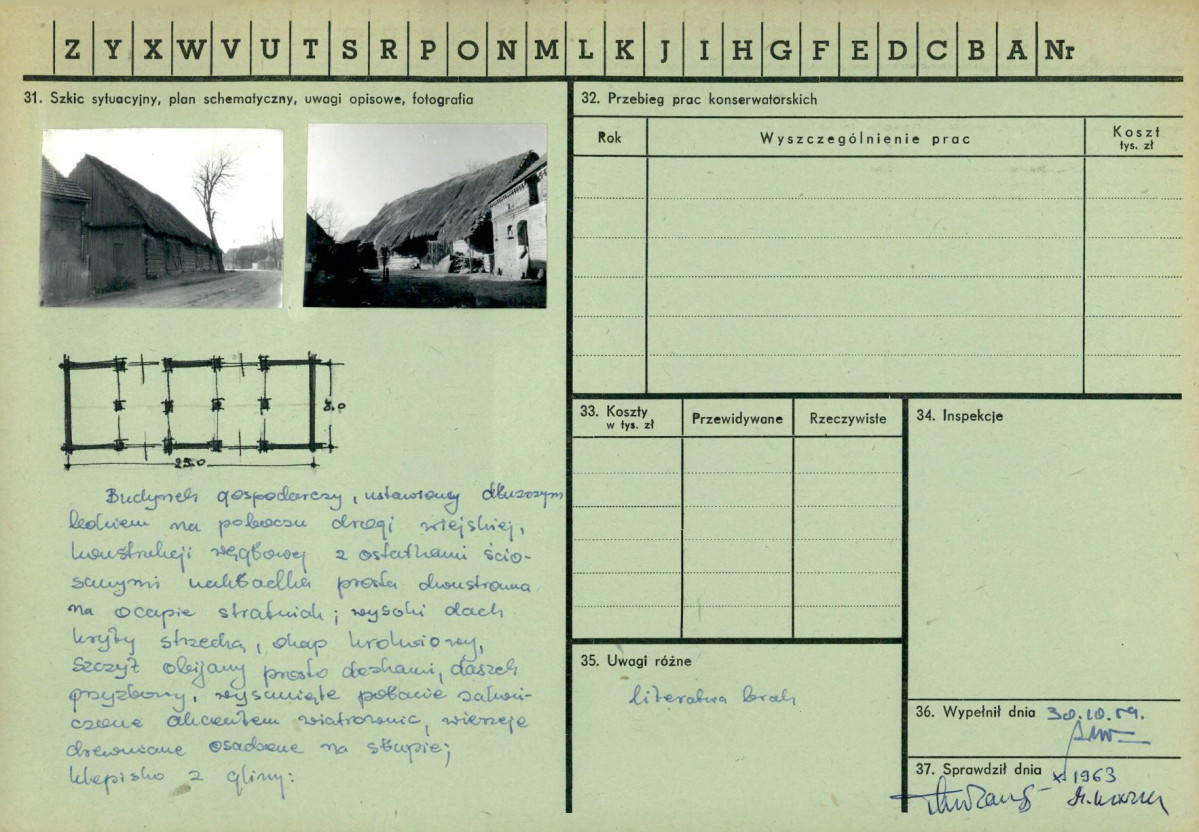 Z Y X W V U T S R P O N M L K J I H G F E D C B A Nr
31. Szkic sytuacyjny, plan schematyczny, uwagi opisowe, fotografia
8.0
25.0
Budynek gospodarczy, ustawiony dłuższym
bokiem na poboczu drogi wiejskiej,
konstrukcji węgłowej z ostatkami ścio-
sanymi nakładka prosta dwustronna
na ocapie; wysoki dach
kryty strzechą, okap krokwiowy,
szczyt obijany prosto deskami, daszek
przyzbowy, wysunięte połacie zakoń-
czone akcentem wiatrownic, wierzeje
drewniane osadzone na słupie;
klepisko z gliny:
32. Przebieg prac konserwatorskich
Rok
Wyszczególnienie prac
Koszt
tys. zł
33. Koszty
w tys. zł
Przewidywane
Rzeczywiste
34. Inspekcje
35. Uwagi różne
literatura brak
36. Wypełnił dnia 30.10.59.
37. Sprawdził dnia X 1963